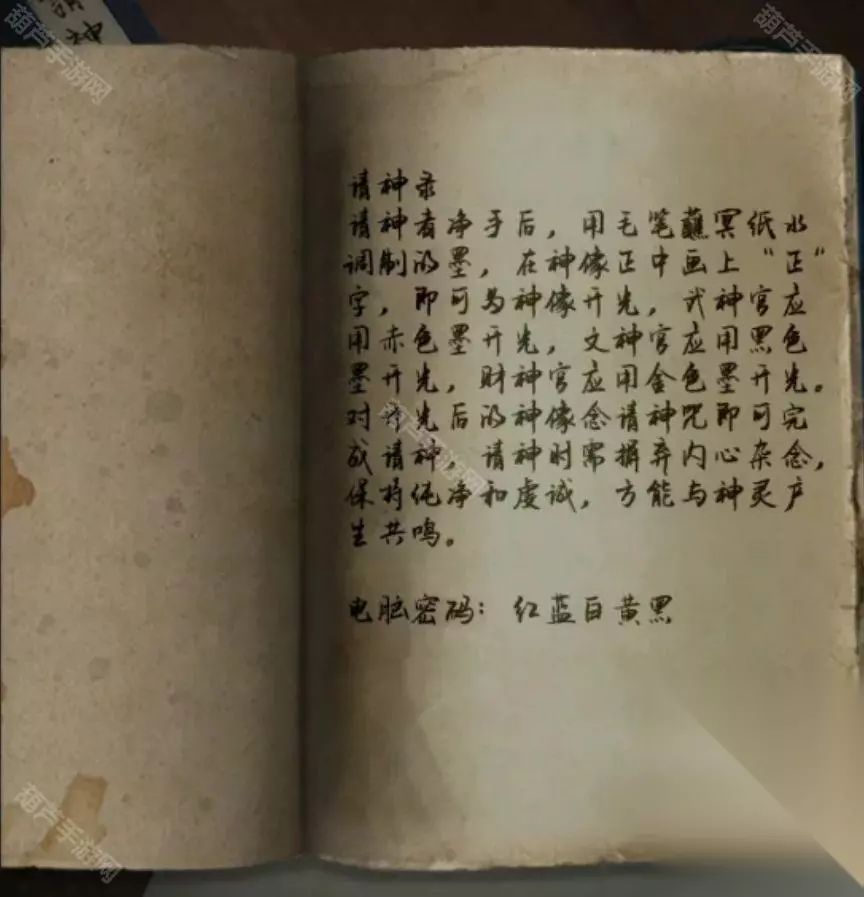 請神
葫芦手游网
葫芦手游网
请神录
请神者净手后，用毛笔蘸冥纸水
调制的墨，在神像正中画上“正“
字，即可为神像开光，武神官应
用赤色墨开光，文神官应用黑色
墨开光，财神官应用金色墨开光。
对开光后的神像念请神咒即可完
成请神，请神时需摒弃内心杂念，
保持纯净和虔诚，方能与神灵产
生共鸣。
葫芦手游网
电脑密码：红蓝白黄黑
葫芦手游网